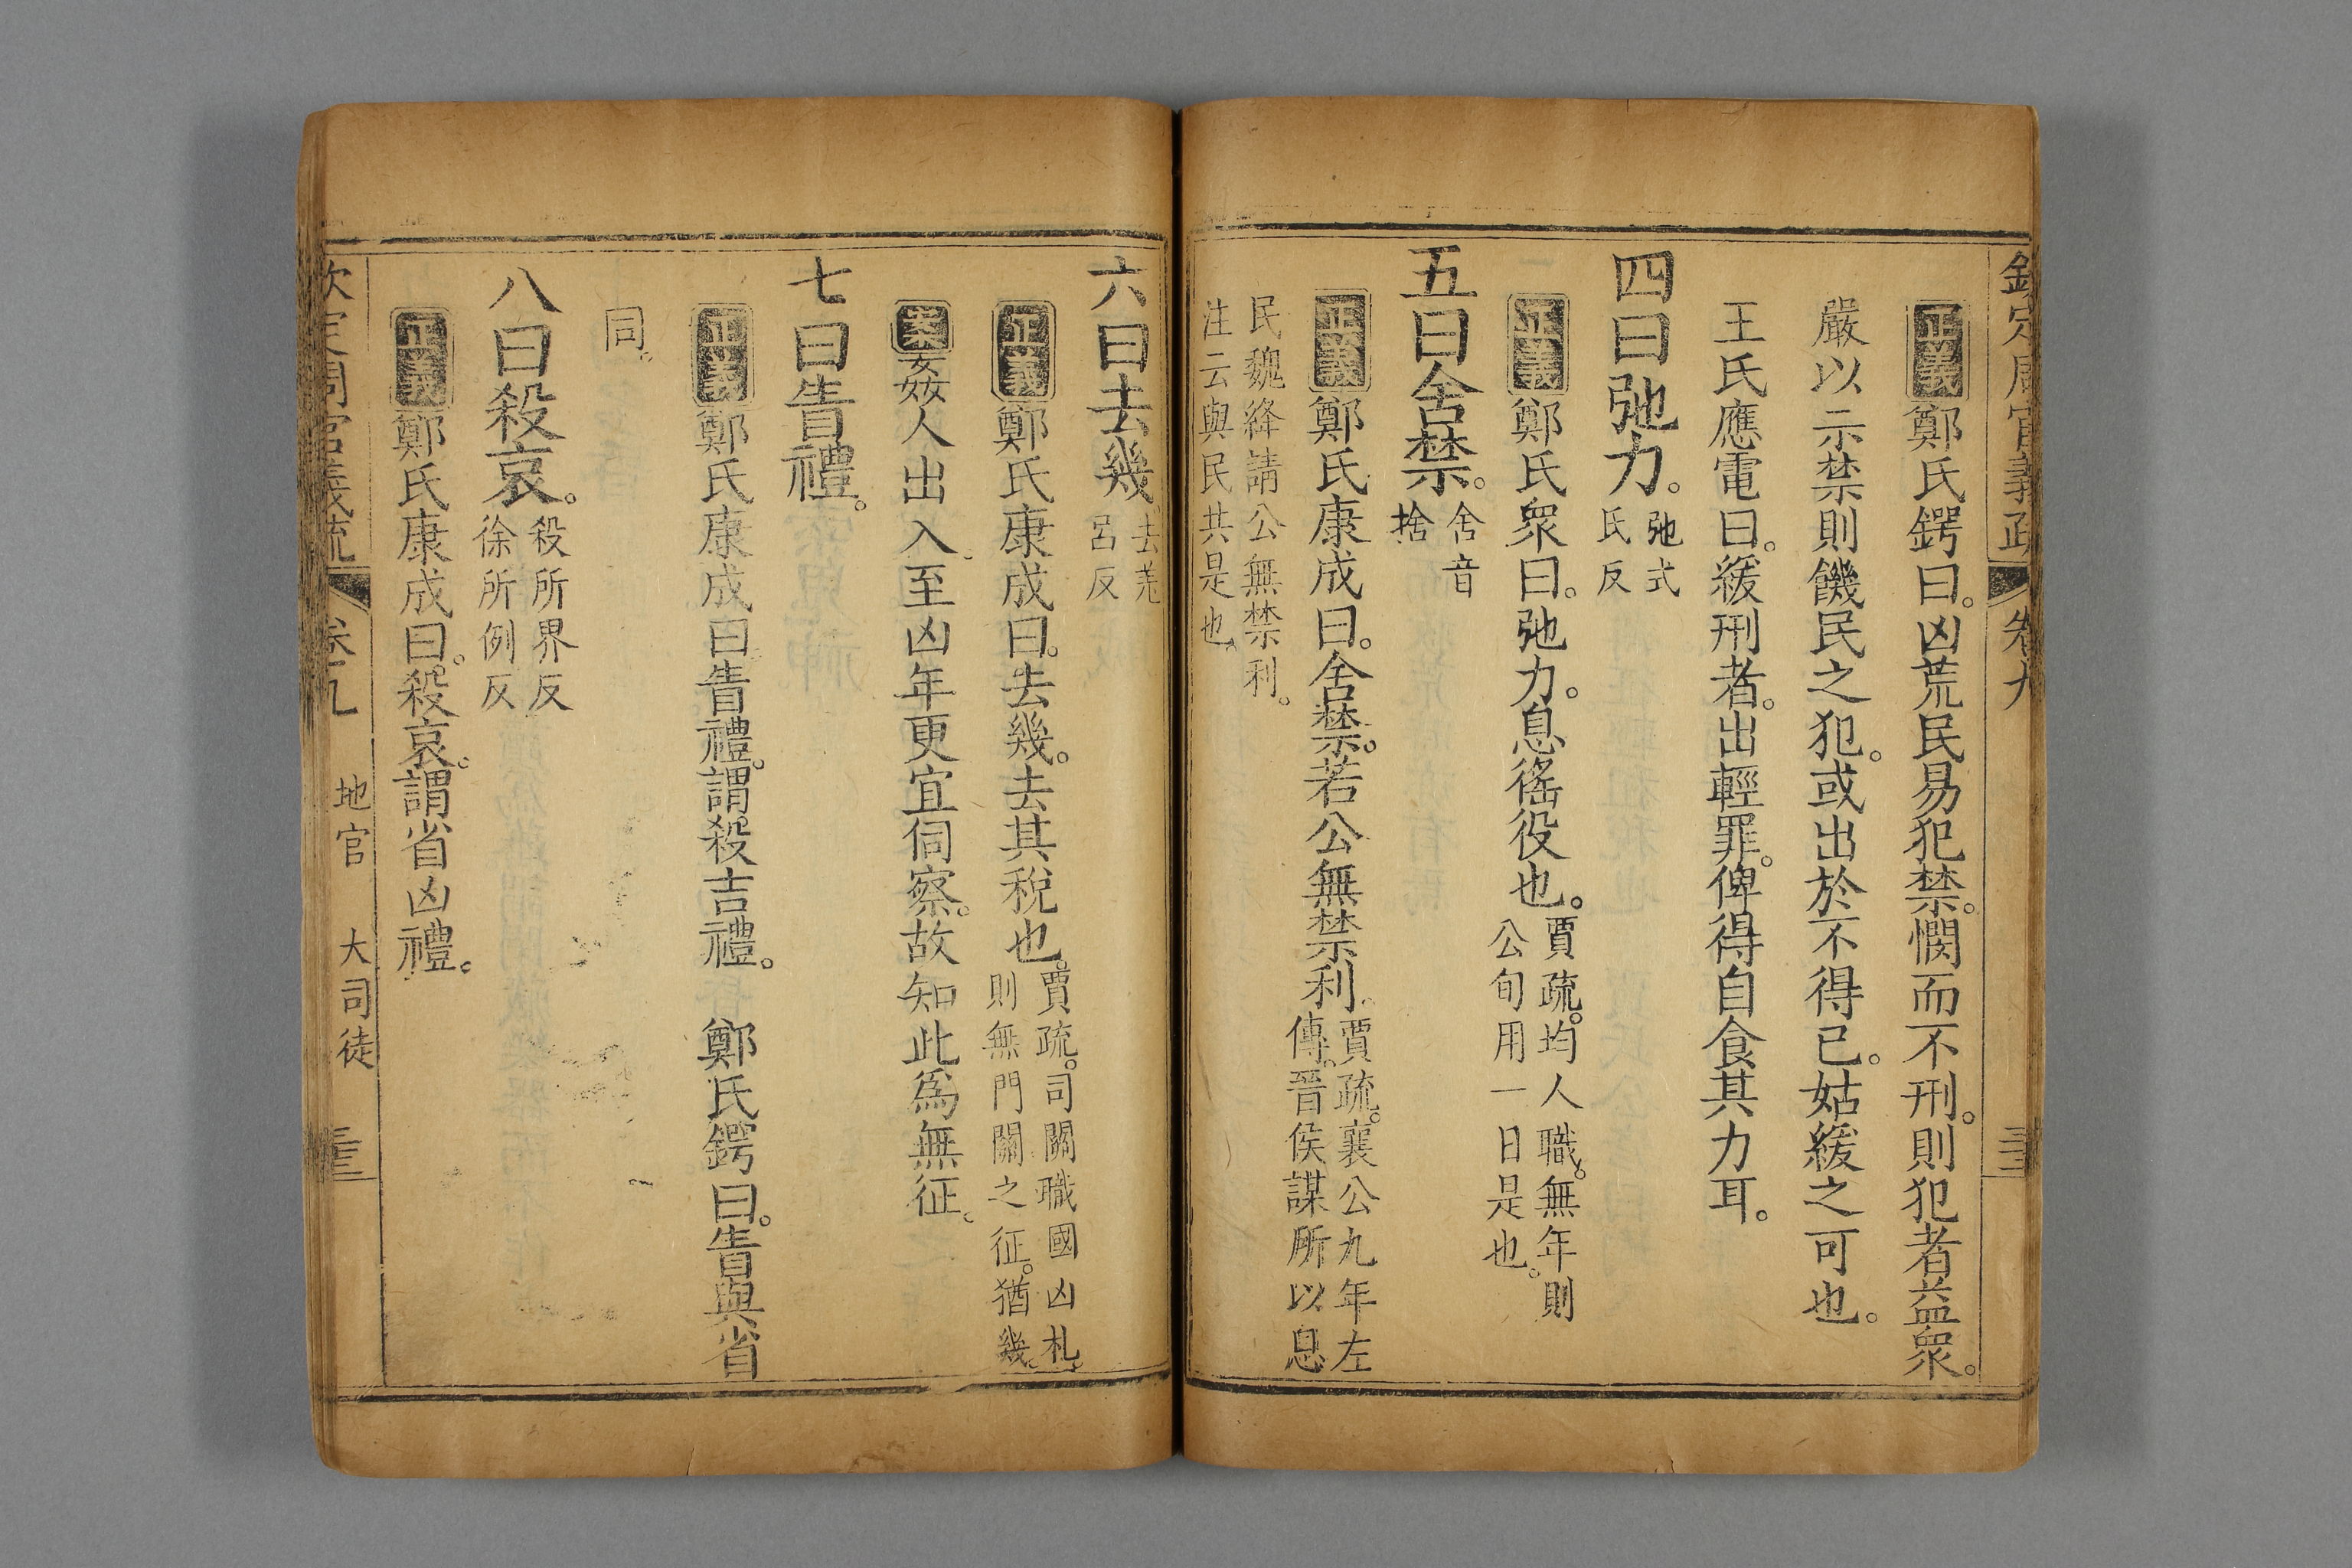 欽定周官義疏 卷九
正義鄭氏鍔曰。凶荒民易犯禁。憫而不刑。則犯者益衆。
嚴以示禁則饑民之犯。或出於不得已。姑緩之可也。
王氏應電曰。緩刑者。出輕罪。俾得自食其力耳。
四曰弛力。弛式
氏反
正義鄭氏衆曰。弛力。息徭役也。賈疏。均人職。無年則
公旬用一日是也。
五曰舍禁。舍音
捨
正義鄭氏康成曰。舍禁。若公無禁利。賈疏。襄公九年左
傳。晉侯謀所以息
民魏絳請公無禁利。
注云與民共是也。
六曰去幾去羌
呂反
正義鄭氏康成曰。去幾。去其稅也。賈疏。司關職國凶札。
則無門關之征。猶幾。
案姦人出入。至凶年更宜伺察。故知此爲無征。
七曰眚禮。
正義鄭氏康成曰眚禮。謂殺吉禮。 鄭氏鍔曰。眚與省
同。
八曰殺哀。殺所界反
徐所例反
正義鄭氏康成曰。殺哀。謂省凶禮。
欽定周官義疏 卷九 地官 大司徒